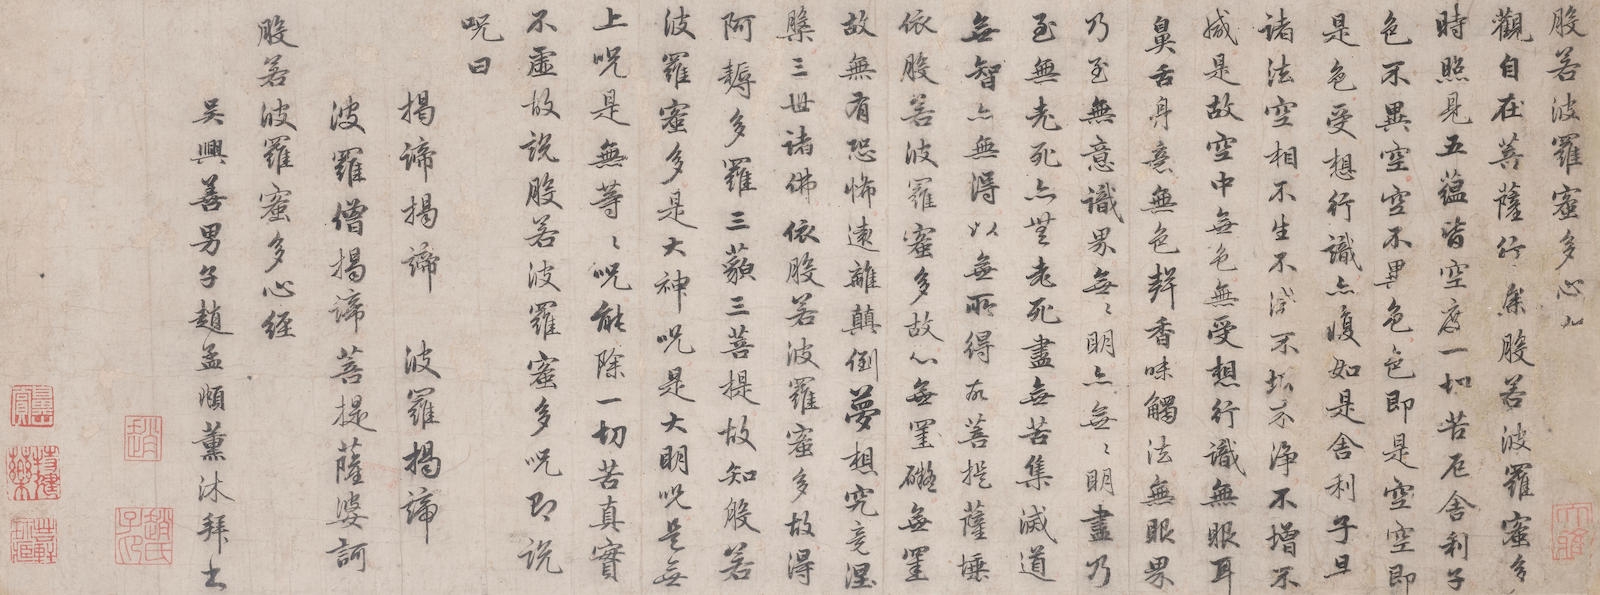 般若波羅蜜多心
觀自在菩薩行深般若波羅蜜多
時照見五蘊皆空度一切苦厄舍利子
色不異空空不異色色即是空空即
是色受想行識亦復如是舍利子是
諸法空相不生不滅不垢不淨不增不
減是故空中無色無受想行識無眼耳
鼻舌身意無色聲香味觸法無眼界
乃至無意識界無無明亦無無明盡乃
至無老死亦無老死盡無苦集滅道
無智亦無得以無所得故菩提薩埵
依般若波羅蜜多故心無罣礙無罣
故無有恐怖遠離顛倒夢想究竟涅
槃三世諸佛依般若波羅蜜多故得
阿耨多羅三藐三菩提故知般若
波羅蜜多是大神呪是大明呪是無
上呪是無等等呪能除一切苦真實
不虛故說般若波羅蜜多呪即說
呪曰
揭諦揭諦 波羅揭諦
波羅僧揭諦 菩提薩婆訶
般若波羅蜜多心經
吳興善男子趙孟頫薰沐拜書
趙
趙氏子昂
大雅